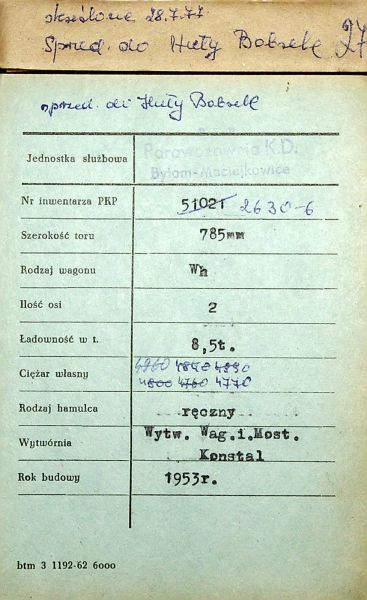 skreślono 28.7.77
Sprzed. do Huty Bobrek 27
sprzed. do Huty Bobrek
Jednostka służbowa
Parowozownia K.D.
Bytom-Maciejkowice
Nr inwentarza PKP 51021 2630-6
Szerokość toru 785mm
Rodzaj wagonu Wh
Ilość osi 2
Ładowność w t. 8,5t.
4860 4840 4890
Ciężar własny
4800 4760 4770
Rodzaj hamulca ręczny
Wytw. Wag.i.Most.
Wytwórnia
Konstal
Rok budowy 1953r.
btm 3 1192-62 6000